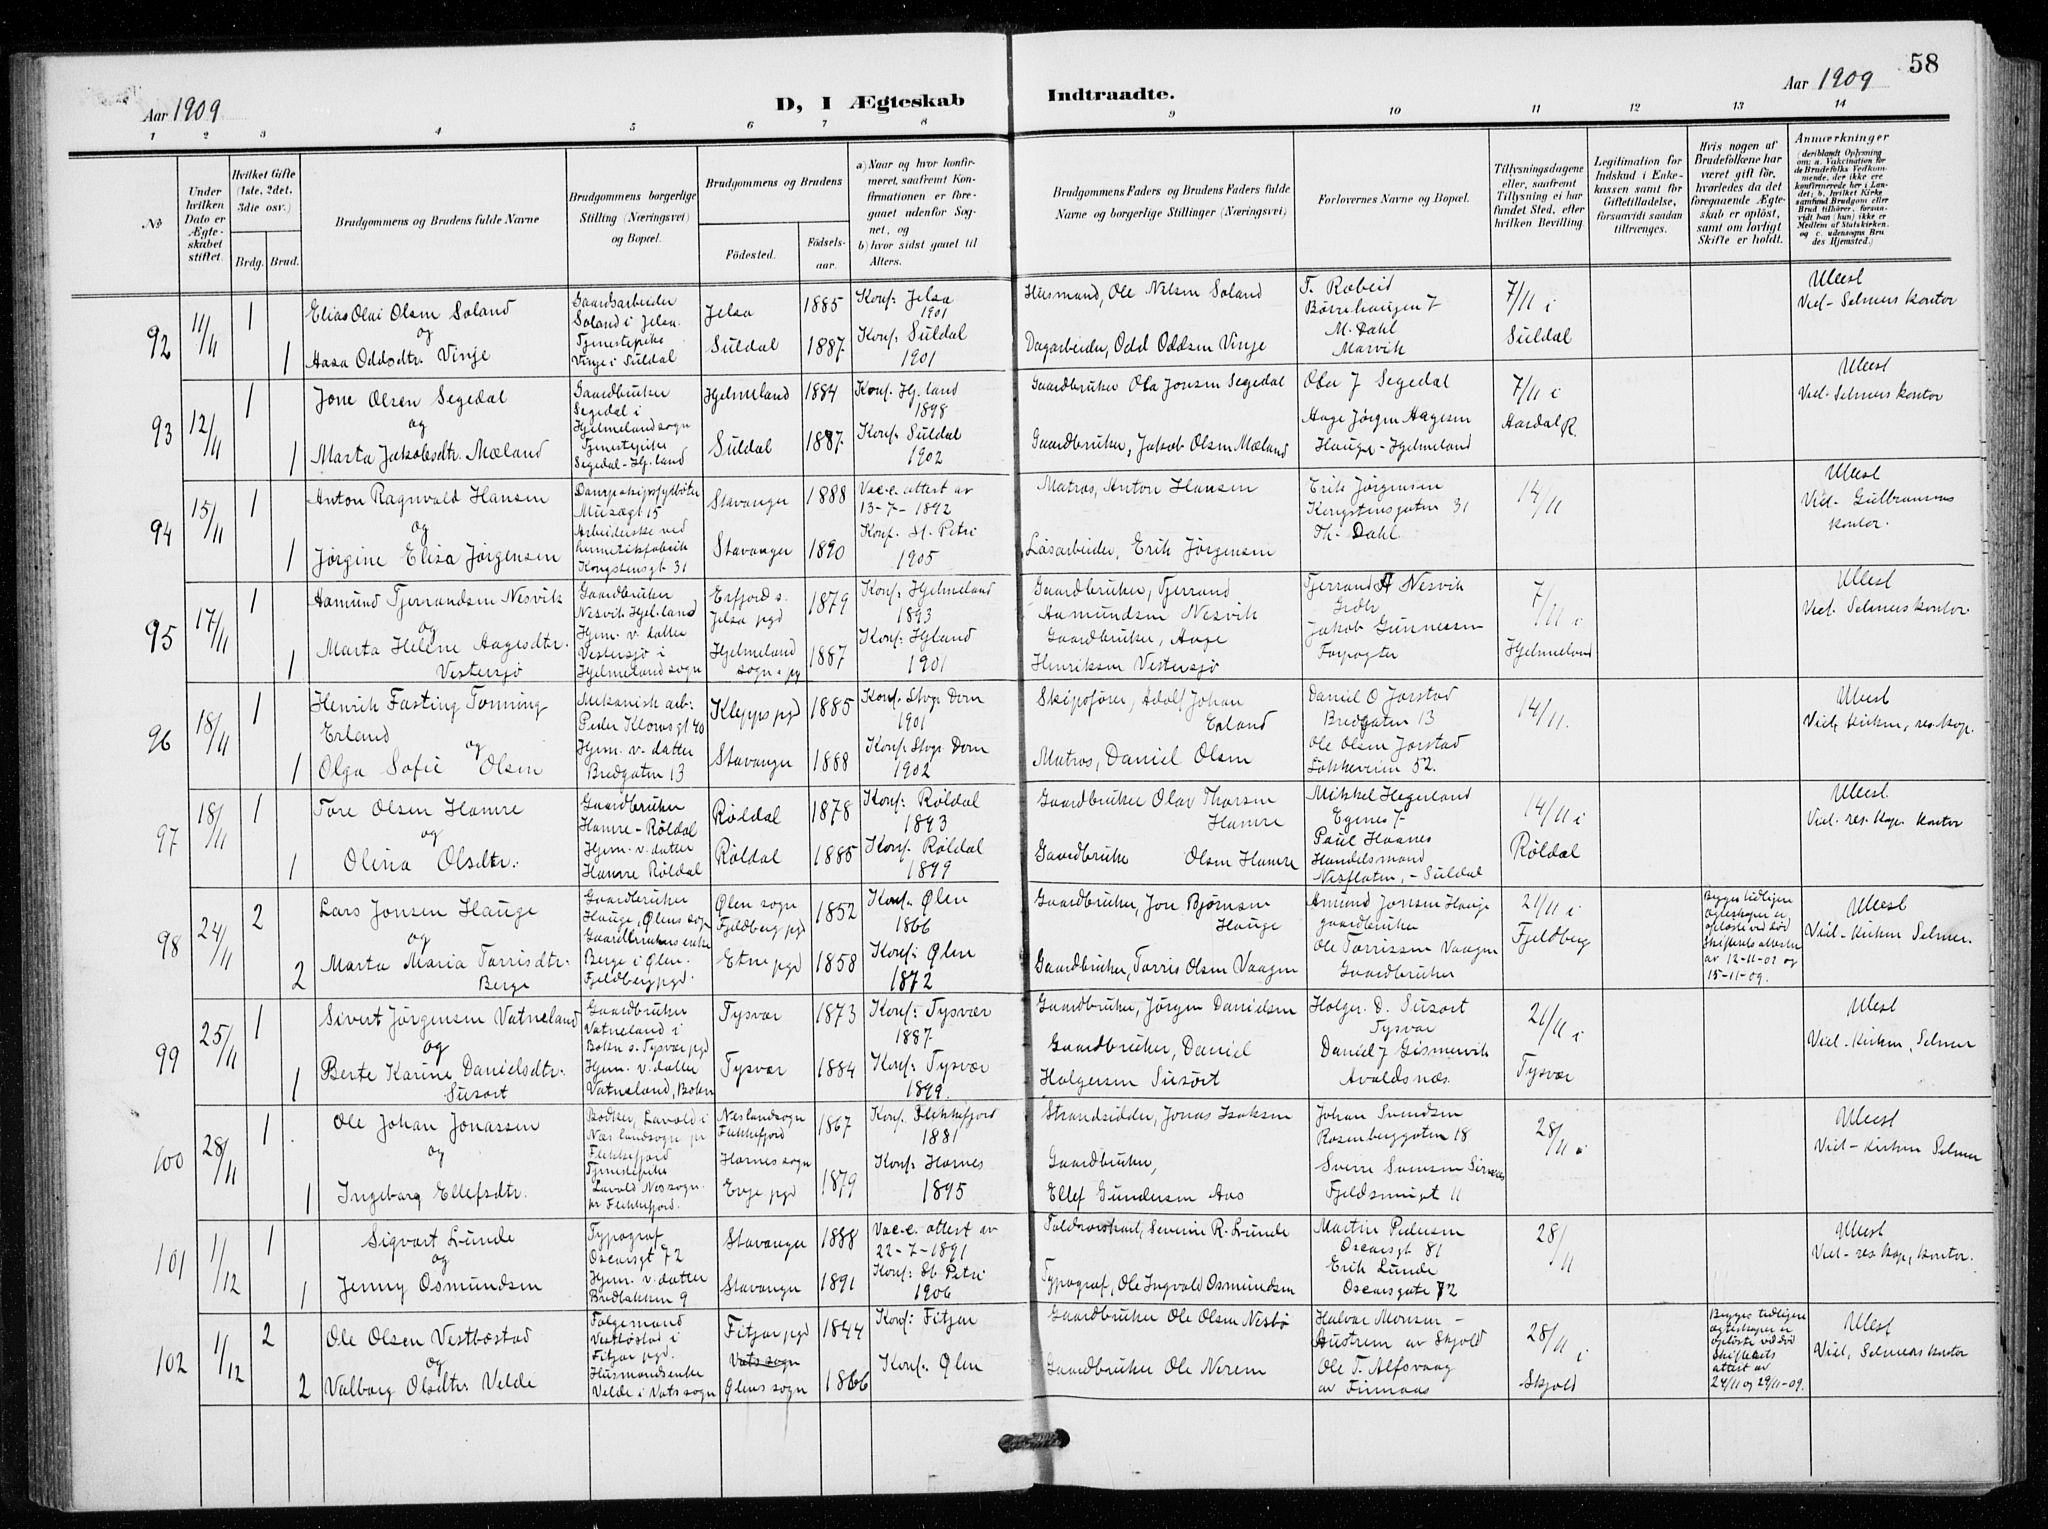 58
Aar 1909
D, I Ægteskab
Indtraadte.
Aar 1909
1 2 3 4 5 6 7 8 9 10 11 12 13 14
No
Under hvilken Dato er Ægteskabet stiftet.
Hvilket Gifte (1ste, 2det, 3die osv.)
Brdg. Brud.
Brudgommens og Brudens fulde Navne
Brudgommens borgerlige Stilling (Næringsvei) og Bopæl.
Brudgommens og Brudens
Födested.
Födselsaar.
a) Naar og hvor konfirmeret, saafremt Konfirmationen er foregaaet udenfor Sognet, og
b) hvor sidst gaaet til Alters.
Brudgommens Faders og Brudens Faders fulde Navne og borgerlige Stillinger (Næringsvei)
Forlovernes Navne og Bopæl.
Tillysningsdagene eller, saafremt Tillysning ei har fundet Sted, efter hvilken Bevilling.
Legitimation for Indskud i Enkekassen samt for Giftetilladelse, forsaavidt saadan tiltrænges.
Hvis nogen af Brudefolkene har været gift för, hvorledes da det foregaaende Ægteskab er oplöst, samt om lovligt Skifte er holdt.
Anmærkninger
(deriblandt Oplysning om: a. Vakcination for de Brudefolks Vedkommende, der ikke ere konfirmerede her i Landet; b. hvilket Kirkesamfund Brudgom eller Brud tilhörer, forsaavidt han (hun) ikke er Medlem af Statskirken, og c. udensogns Brudes Hjemsted.)
92
11/11
1
Elias Olai Olsen Soland
og
1
Aasa Oddsdtr. Vinje
Gaardsarbeider
Soland i Jelsa.
Tjenestepike
Vinje i Suldal
Jelsa
Suldal
1885
1887
Konf: Jelsa
1901
Konf: Suldal
1901
Husmand, Ole Nilsen Soland
Dagarbeider, Odd Oddsen Vinje
Børrehaugen 7
M. Dahl
Marvik
7/11 i
Suldal
Viel- Selmers kontor
93
12/11
1
Jone Olsen Segedal
og
1
Marta Jakobsdtr. Mæland
Gaardbruker
Segedal i
Hjelmelandsogn
Tjenestepike
Segedal - Hj.land
Hjelmeland
Suldal
1884
1887
Konf: Hj.land
1898
Konf: Suldal
1902
Gaardbruker Ola Jonsen Segedal
Gaardbruker, Jakob Olsen Mæland
Ola J Segedal
Aage Jørgen Aagesen
Hauge - Hjelmeland
7/11 i
Aardal R.
Viel. Selmers kontor
94
15/11
1
Anton Ragnvald Hansen
og
1
Jørgine Elisa Jørgensen
Dampskipsfyrbøter
Musægt 15
Arbeiderske ved
hermetikfabrik
Kongstensgt 31
Stavanger
Stavanger
1888
1890
Vac-c. attest av
13-7-1892
Konf. St. Petri
1905
Matros, Anton Hansen
Løsarbeider, Erik Jørgensen
Erik Jørgensen
Kongstensgaten 31
Th. Dahl
14/11
Viel- Gulbransens
kontor.
95
17/11
1
Aamund Tjerrandsen Nesvik
og
1
Marta Helene Aagesdtr.
Vestersjø
Gaardbruker
Nesvik Hjel.land
Hjem. v. datter
Vestersjø i
Hjelmeland sogn
Erfjord s.
Jelsa pgd
Hjelmeland
sogn o. pg
1879
1887
Konf: Hjelmeland
1893
Konf: Hjland
1901
Gaardbruker, Tjerrand
Aamundsen Nesvik
Gaardbruker, Aage
Henriksen Vestersjø
Tjerrand A Nesvik
Grdbr
Jakob Gunnessen
Forpagter
7/11 i
Hjelmeland
Viel. Selmers kontor.
96
18/11
1
Henrik Fasting Tonning
Erland
og
1
Olga Sofie Olsen
Mekanisk arb:
Peder Klowsgt 40
Hjem. v. datter
Bredgaten 13
Klepps pgd
Stavanger
1885
1888
Konf: Stvgr. Dom
1901
Konf: Stvgr. Dom
1902
Skipsfører, Adolf Johan
Erland
Matros, Daniel Olsen
Daniel O Jorstad
Bredgaten 13
Ole Olsen Jorstad
Løkkeveien 52.
14/11.
Viel, kirken, res. kap.
97
18/11
1
Tore Olsen Hamre
og
1
Olina Olsdtr:
Gaardbruker
Hamre - Røldal
Hjem. v. datter
Hamre Røldal
Røldal
Røldal
1878
1885
Konf: Røldal
1893
Konf. Røldal
1899
Gaardbruker Olav Thorsen
Hamre
Gaardbruker Olsen Hamre
Mikkel Hegerland
Egenes 7
Paul Haanes
Handelsmand
Nesflaten, - Suldal
14/11 i
Røldal
Viel- res. kap. kontor
98
24/11
2
Lars Jonsen Hauge
og
2
Marta Maria Tarrisdtr.
Berge
Gaardbruker
Hauge, Ølens sogn
Gaardbrukers enke
Berge i Ølen.
Fjeldberg pgd.
Ølen sogn
Fjeldberg pgd
Etne pgd
1852
1858
Konf. Ølen
1866
Konf: Ølen
1872
Gaardbruker, Jon Bjørnsen
Hauge
Gaardbruker, Tarris Olsen Vaagen
Amund Jonsen Hauge
gaardbruker
Ole Tarrissen Vaagen
Gaardbruker
21/11 i
Fjeldberg
Begges tidligere
egteskaper er
opløste ved død
Skifterets attester
av 12-11-09 og
15-11-09.
Viel- kirken Selmer.
99
25/11
1
Sivert Jørgensen Vatneland
og
1
Berte Karine Danielsdtr:
Susort
Gaardbruker
Vatneland i
Bokn s. Tysvær pgd
Hjem. v. datter
Vatneland, Bokn
Tysvær
Tysvær
1873
1884
Konf: Tysvær
1887.
Konf: Tysvær
1899.
Gaardbruker, Jørgen Danielsen
Gaardbruker, Daniel
Holgersen Susort
Holger. D. Susort
Tysvær
Daniel J Gismervik
Avaldsnæs.
21/11 i
Tysvær
Viel- kirken, Selmer
100
28/11
1
Ole Johan Jonassen
og
1
Ingeborg Ellefsdtr.
Bødker, Lavold i
Næs landsogn pr
Flekkefjord
Tjenestepike
Lavold Nessogn.
pr Flekkefjord.
Neslandsogn
Flekkefjord
Hornes sogn
Evje pgd
1867
1879
Konf. Flekkefjord
1881
Konf: Hornes
1895
Strandsidder, Jonas Isaksen
Gaardbruker,
Ellef Gundersen Aas
Johan Svendsen
Rosenberggaten 18
Fjeldsmugt 11
28/11
Viel- kirken Selmer
101
1/12
1
Sigvart Lunde
og
1
Jenny Osmundsen
Typograf
Oscarsgt 72
Hjem. v. datter
Bredbakken 9
Stavanger
Stavanger
1888
1891
Vac-c. attest av
22-7-1891
Konf: St Petri
1906
Toldopsynsmand, Severin R. Lunde
Typograf, Ole Ingvald Osmundsen
Martin Pedersen
Oscarsgt 81
Erik Lunde
Oscarsgate 72
28/11
Viel- res kap. kontor.
102
1/12
2
Ole Olsen Vestbøstad
og
2
Valborg Olsdtr. Velde
Folgemand
Vestbøstad i
Fitjar pgd.
Husmandsenke
Velde i Vats sogn
Fitjar pgd
Vats sogn
Ølens sogn
1844
1866
Konf: Fitjar
Konf. Ølen
Gaardbruker Ole Olsen Nesbø
Gaardbruker Ole Nerem
Halvar Monsen -
Austrem av Skjold
Ole T. Alfsvaag
av Finnaas
28/11 i
Skjold
Begges tidligere
egteskaper er
opløste ved død
skifterets
attest av
24/11 og 29/11-09.
Viel, Selmers kontor